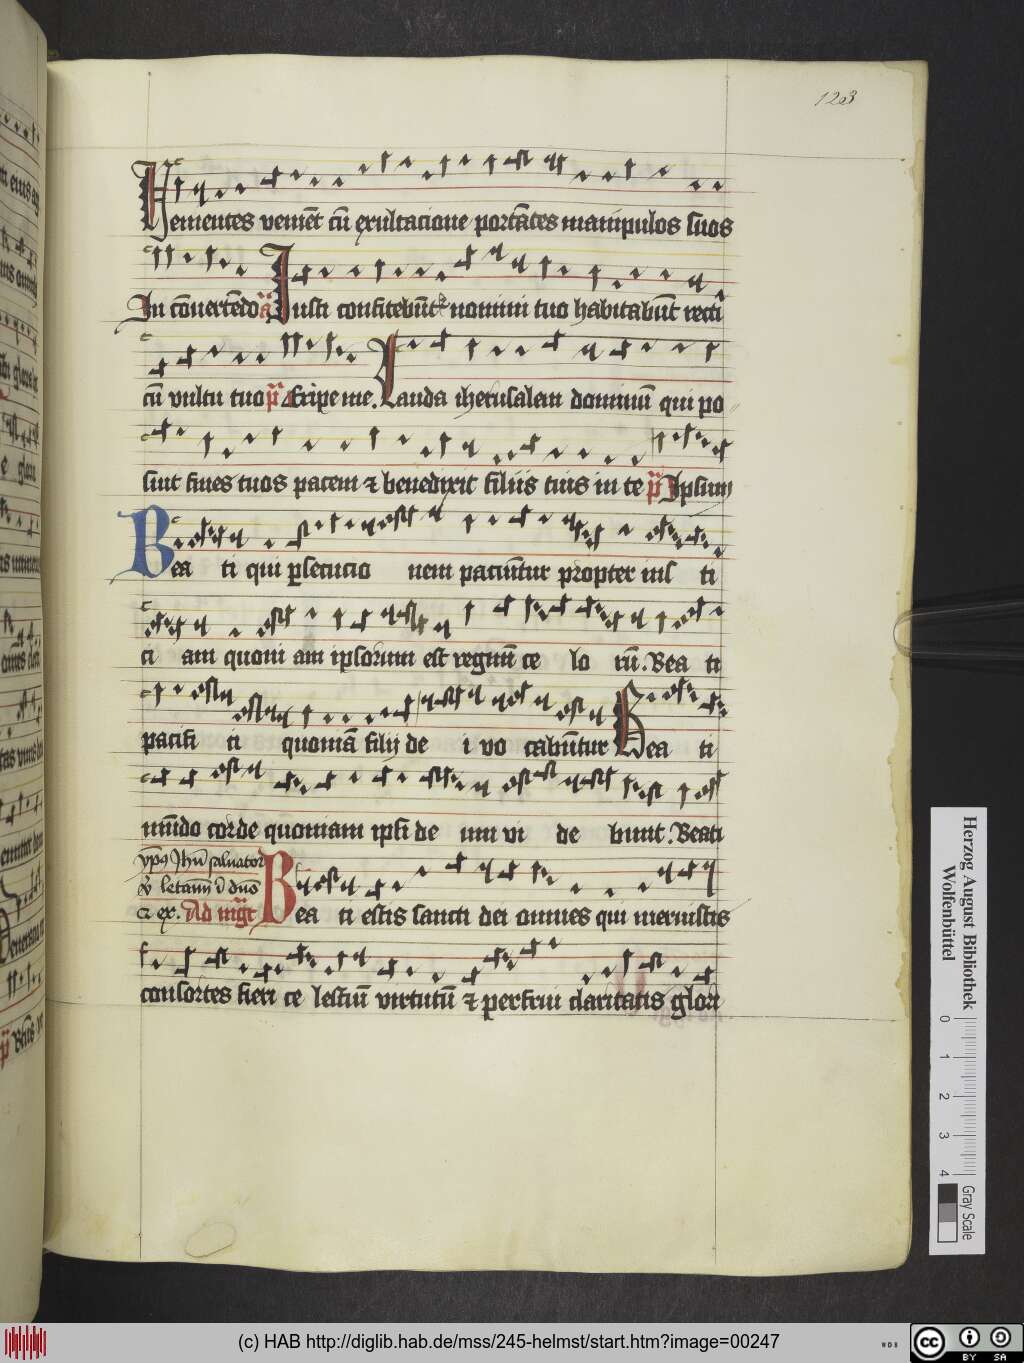 123
Uenientes venient cū exultacione portātes manipulos suos
In cōuertēdo a Iusti confitebūt nomini tuo habitabūt recti
cū vultu tuo ps Eripe me. Lauda iherusalem dominū qui po
suit fines tuos pacem ⁊ benedixit filiis tuis in te ps Ipsum
Bea ti qui ꝑsecucio nem paciūtur propter ius ti
ci am quoni am ipsorum est regnū ce lo rū. Bea ti
pacifi ti quoniā filij de i vo cabūtur Bea ti
mūdo corde quoniam ipsi de um vi de bunt. Beati
Ad mgt Bea ti estis sancti dei omnes qui meruistis
consortes fieri ce lestiū virtutū ⁊ perfrui claritatis glori
Herzog August Bibliothek
Wolfenbüttel
0 1 2 3 4
Gray Scale
(c) HAB http://diglib.hab.de/mss/245-helmst/start.htm?image=00247
WDB
cc BY SA